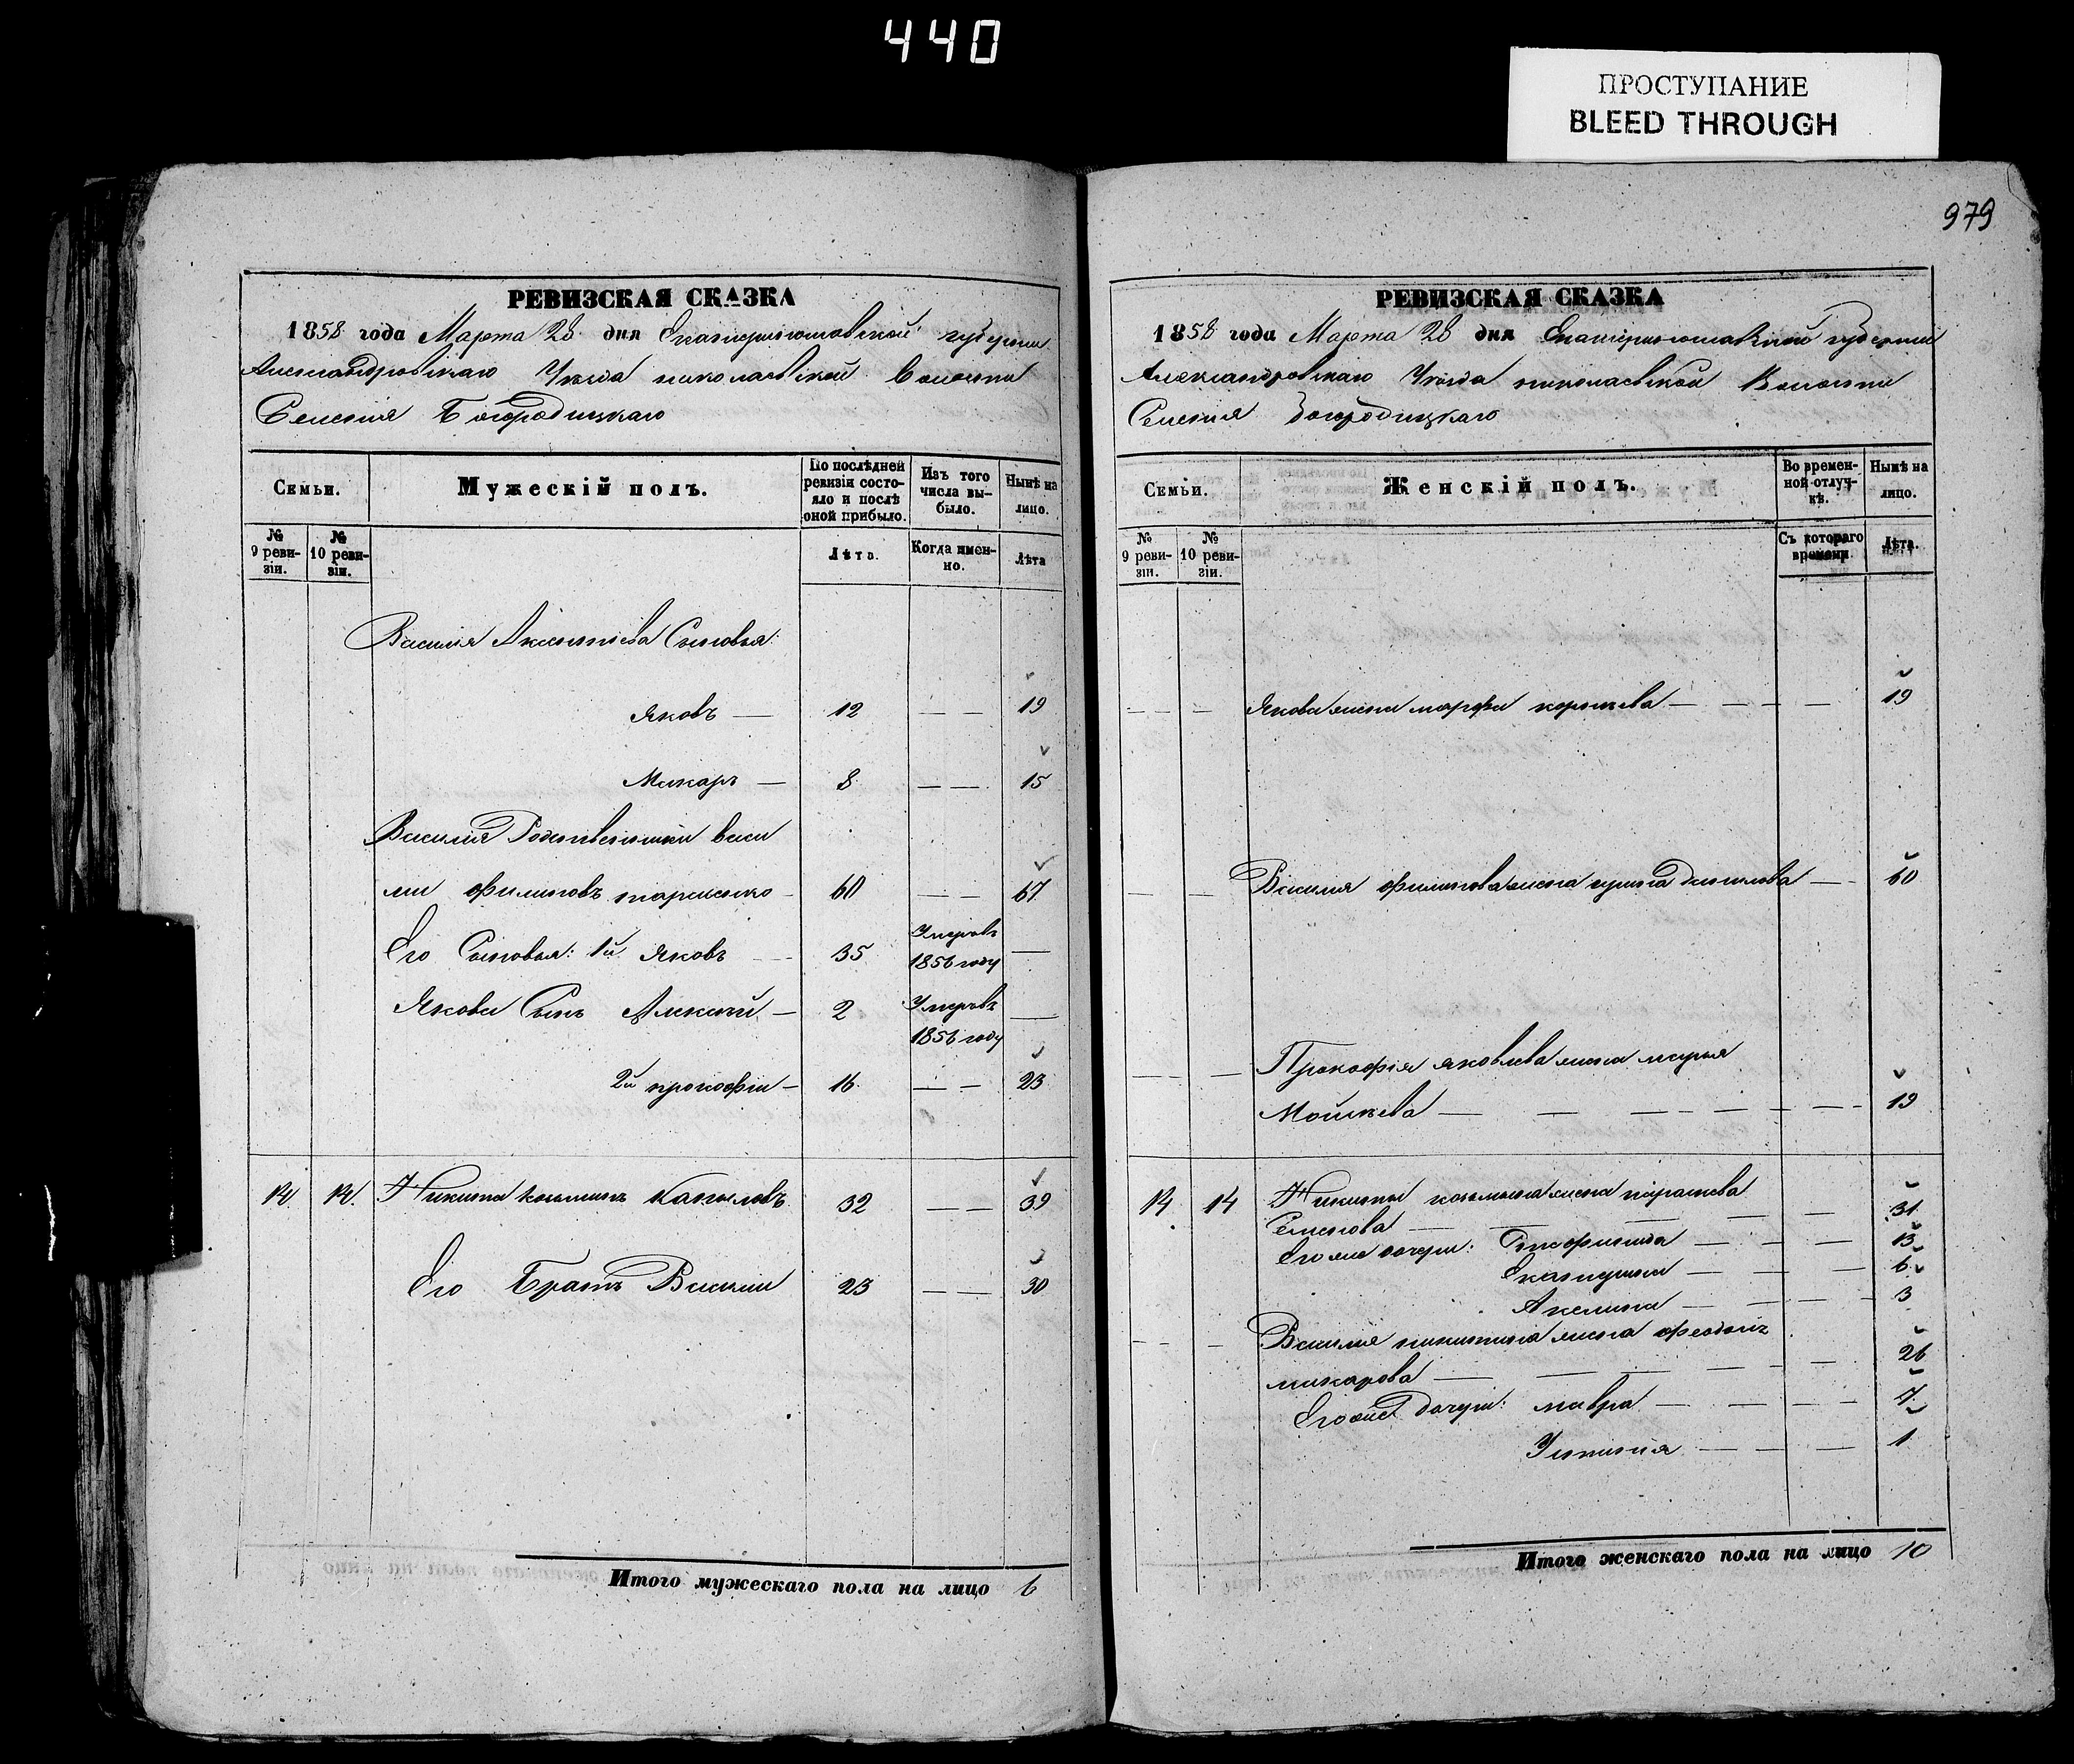 440
ПРОСТУПАНИЕ
BLEED THROUGH
979
РЕВИЗСКАЯ СКАЗКА
1858 года Марта 28 дня Екатеринославской губернии
Александровскаго Уѣзда николаевской Волости
Селения Богородицкаго
Семьи.
Мужескій полъ.
По послѣдней ревизіи состояло и послѣ оной прибыло.
Изъ того числа выбыло.
Нынѣ на лицо.
№ 9 ревизіи.
№ 10 ревизіи.
Лѣта.
Когда именно.
Лѣта
Василия Сыновья:
Яковъ — 12 — — 19
Макаръ — 8 — — 15
Василия Родственники васи
лий филиповъ 60 — — 67
Его Сыновья: 1й Яковъ — 35 Умеръ 1856 году —
Якова Сынъ Алексей — 2 Умеръ 1856 году —
2й прокофий — 16 — — 23
14 14 Никита козьминъ 32 — — 39
Его Братъ Василий 23 — — 30
Итого мужескаго пола на лицо 6
РЕВИЗСКАЯ СКАЗКА
1858 года Марта 28 дня Екатеринославской губернии
Александровскаго Уѣзда николаевской Волости
Селения Богородицкаго
Семьи.
Женскій полъ.
Во временной отлучкѣ.
Нынѣ на лицо.
№ 9 ревизіи.
№ 10 ревизіи.
Съ котораго времени.
Лѣта.
— — Якова жена марфа — — — — 19
— — Василия филипова жена данилова — 60
— — Прокофия яковлева жена марья
— — — — — — — 19
14 14 Никиты козьмина жена
Семенова — — — — — 31
Его же дочери: — — — 13
Екатерина — — — 6
Акилина — — — 3
— — Василия никитина жена
макарова — — — — 26
Его же дочери: мавра — — — 7
Устиния — — — 1
Итого женскаго пола на лицо 10